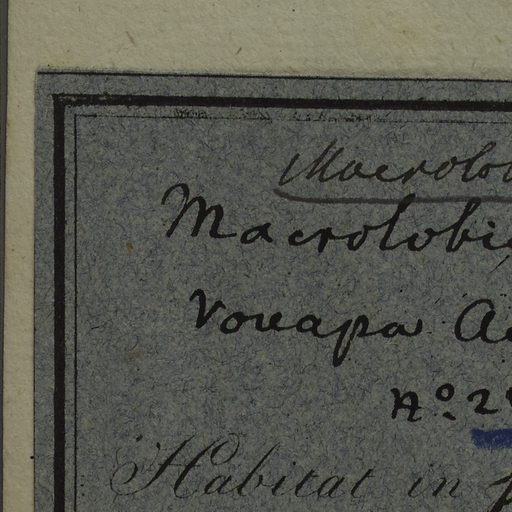 Macrolo
Macrolobi
Vouapa A
Nº 2
Habitat in